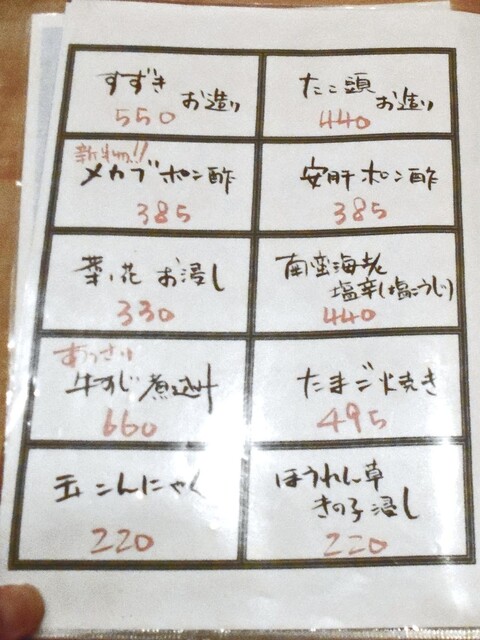 すずき
お造り
550
たこ頭
お造り
440
新物!!
メカブポン酢
385
安肝ポン酢
385
菜ノ花 お浸し
330
南蛮海老
塩辛(塩こうじ)
440
あっさり
牛すじ煮込み
660
たまご焼き
495
玉こんにゃく
220
ほうれん草
きの子浸し
220